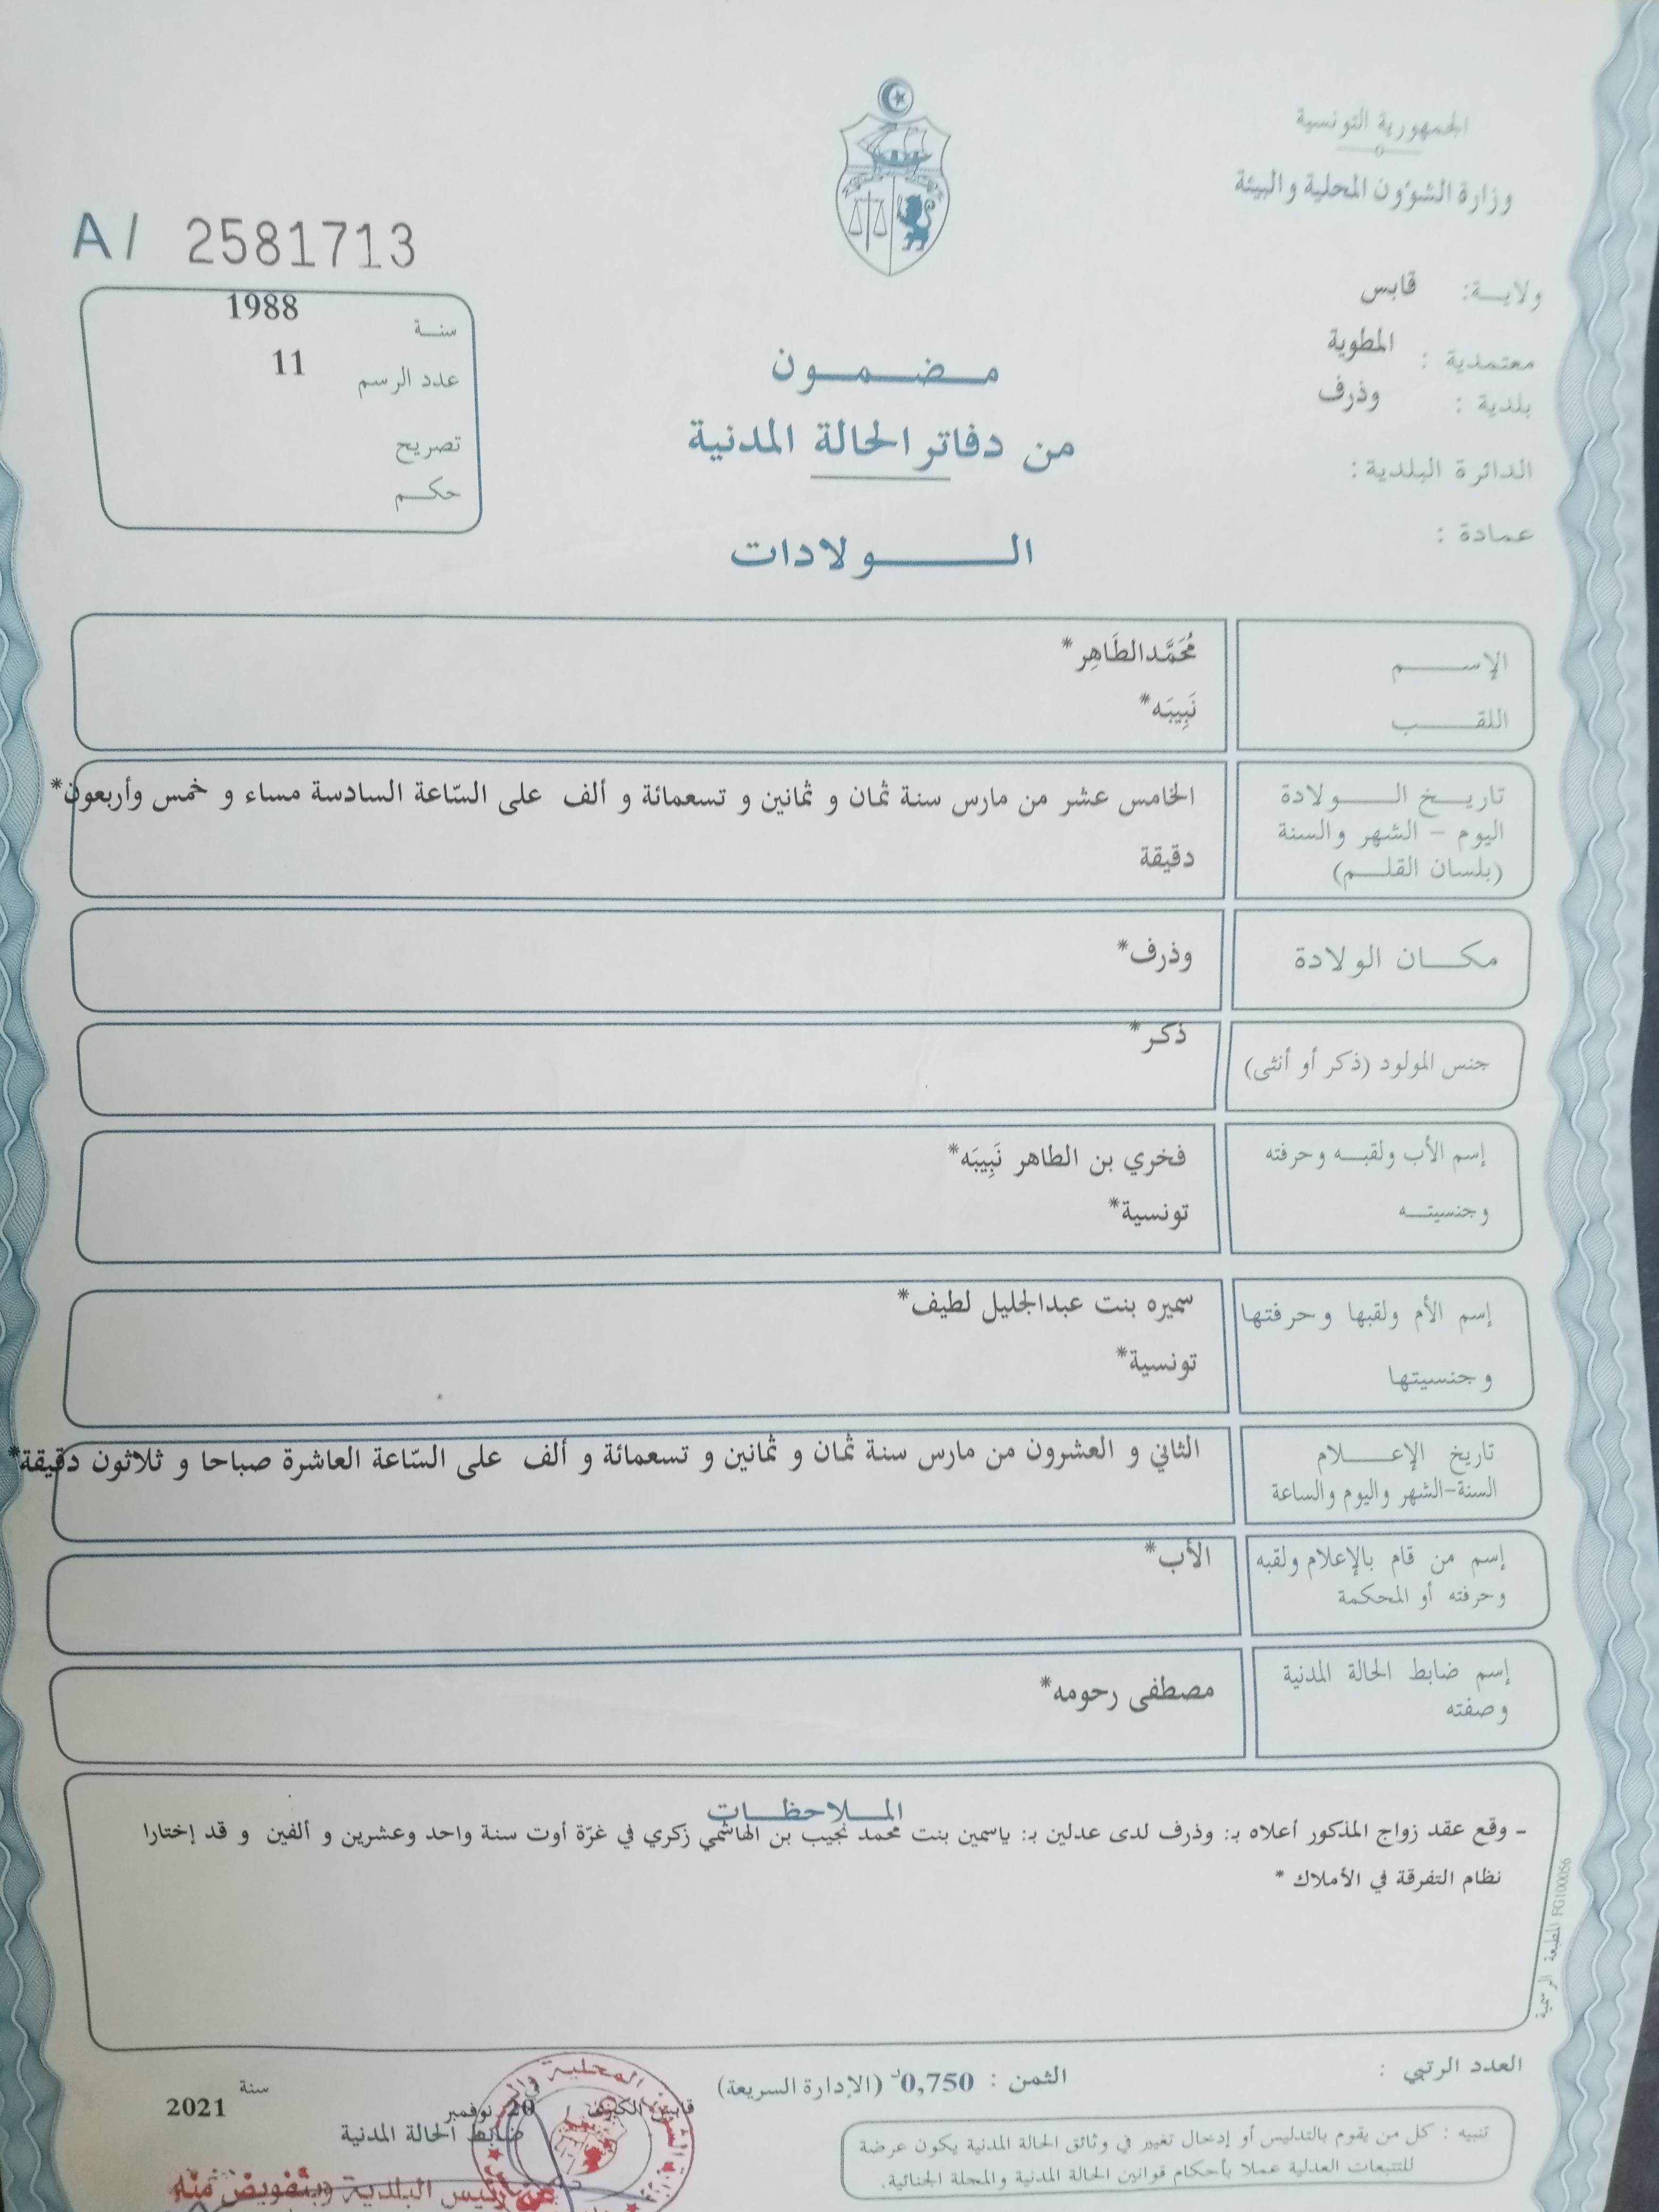 الجمهورية التونسية
وزارة الشؤون المحلية والبيئة
ولاية: قابس
معتمدية : المطوية
بلدية : وذرف
الدائرة البلدية:
عمادة :
A/ 2581713
سنة 1988
عدد الرسم 11
تصريح
حكم
مضمون
من دفاتر الحالة المدنية
الولادات
الإسم مُحَمَّدالطَاهِر*
اللقب نَبِيبَه*
تاريخ الولادة الخامس عشر من مارس سنة ثمان و ثمانين و تسعمائة و ألف على السّاعة السادسة مساء و خمس وأربعون*
اليوم - الشهر والسنة
(بلسان القلم) دقيقة
مكان الولادة وذرف*
جنس المولود (ذكر أو أنثى) ذكر*
إسم الأب ولقبه وحرفته فخري بن الطاهر نَبِيبَه*
وجنسيته تونسية*
إسم الأم ولقبها وحرفتها سميره بنت عبدالجليل لطيف*
وجنسيتها تونسية*
تاريخ الإعلام الثاني و العشرون من مارس سنة ثمان و ثمانين و تسعمائة و ألف على السّاعة العاشرة صباحا و ثلاثون دقيقة*
السنة-الشهر واليوم والساعة
إسم من قام بالإعلام ولقبه الأب*
وحرفته أو المحكمة
إسم ضابط الحالة المدنية مصطفى رحومه*
وصفته
الملاحظات
- وقع عقد زواج المذكور أعلاه بـ: وذرف لدى عدلين بـ: ياسمين بنت محمد نجيب بن الهاشمي زكري في غرّة أوت سنة واحد وعشرين و ألفين و قد إختارا
نظام التفرقة في الأملاك *
المطبعة الرسمية FG100056
العدد الرتبي :
الثمن : 0,750د (الإدارة السريعة)
قابس الكبرى في 20 نوفمبر سنة 2021
ضابط الحالة المدنية
تنبيه : كل من يقوم بالتدليس أو إدخال تغيير في وثائق الحالة المدنية يكون عرضة
للتتبعات العدلية عملا بأحكام قوانين الحالة المدنية والمجلة الجنائية.
عن رئيس البلدية وبتفويض منه